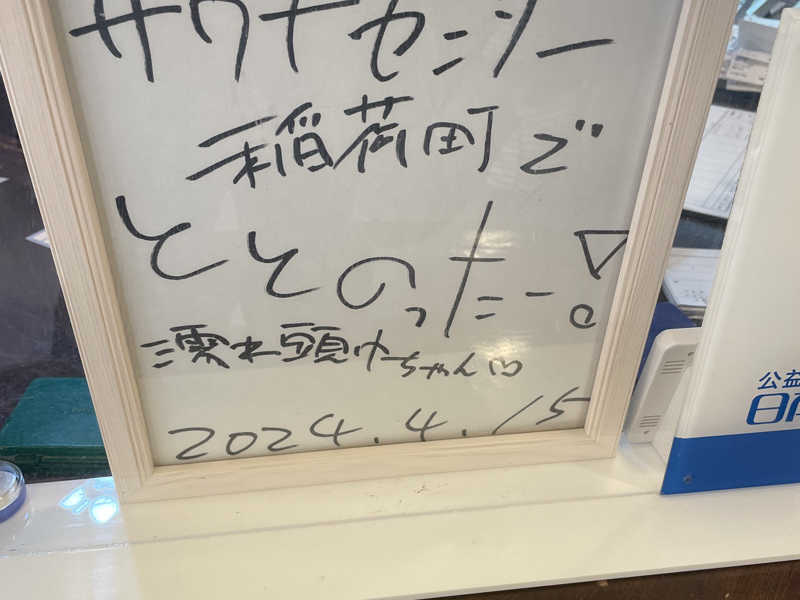 サウナセンター
稲荷町で
ととのったー!
濡れ頭巾ちゃん
2024.4.15
公益